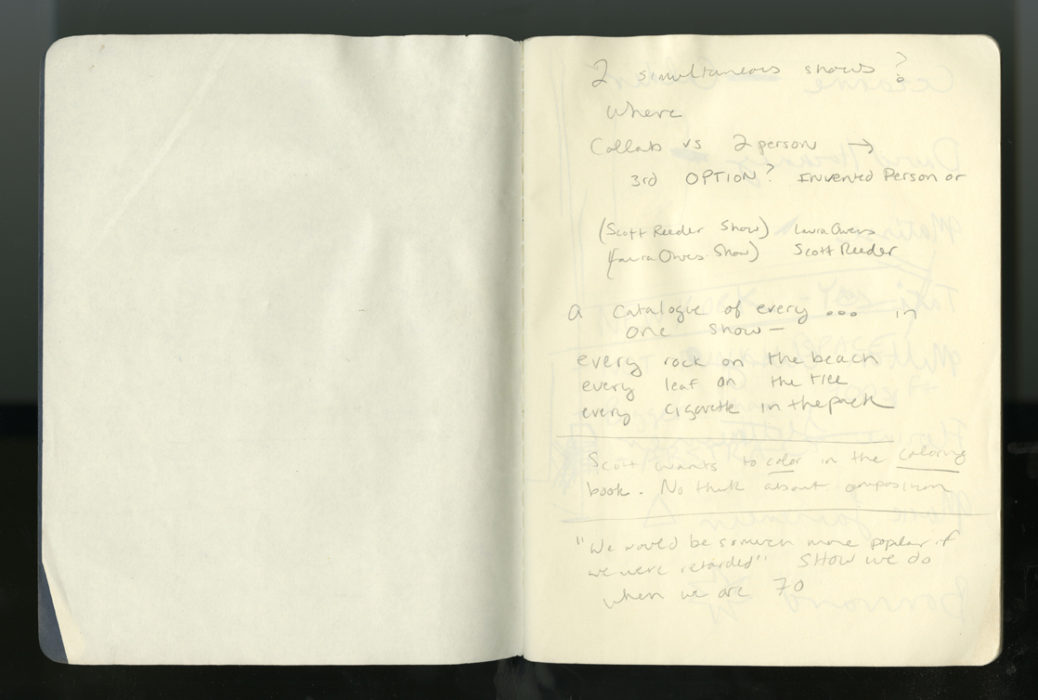 2 simultaneous shows?
where
Collab vs 2 person →
3rd OPTION? Invented Person or
(Scott Reeder Show) Laura Owens
(Laura Owens Show) Scott Reeder
a catalogue of every ... in
one show —
every rock on the beach
every leaf on the tree
every cigarette in the pack
Scott wants to color in the coloring
book. No think about composition
"We would be so much more popular if
we were retarded" SHOW we do
when we are 70